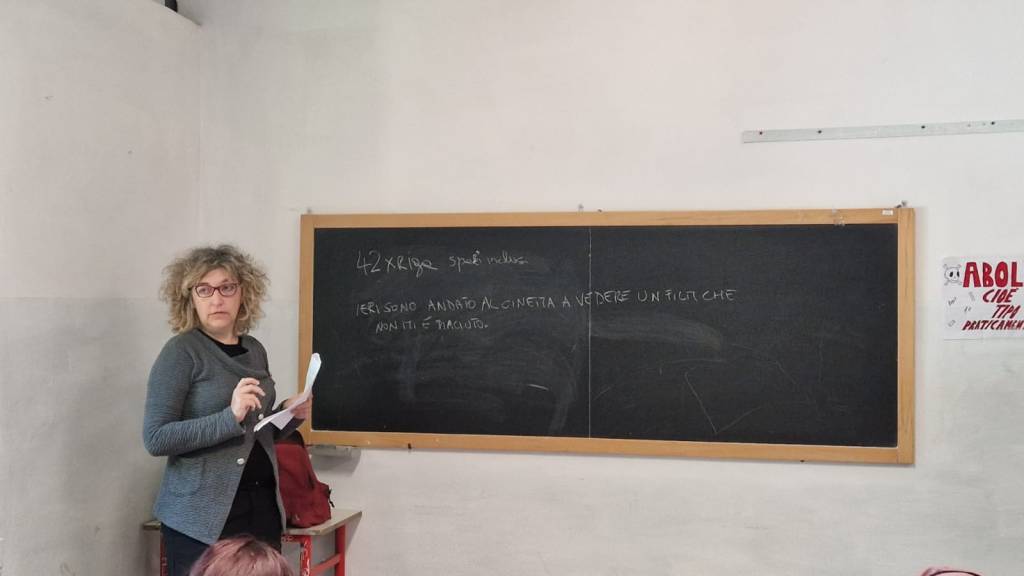 42 x Riga spazi inclusi
IERI SONO ANDATO AL CINEMA A VEDERE UN FILM CHE
NON MI È PIACIUTO.
ABOL
CIOE
TIPO
PRATICAMEN